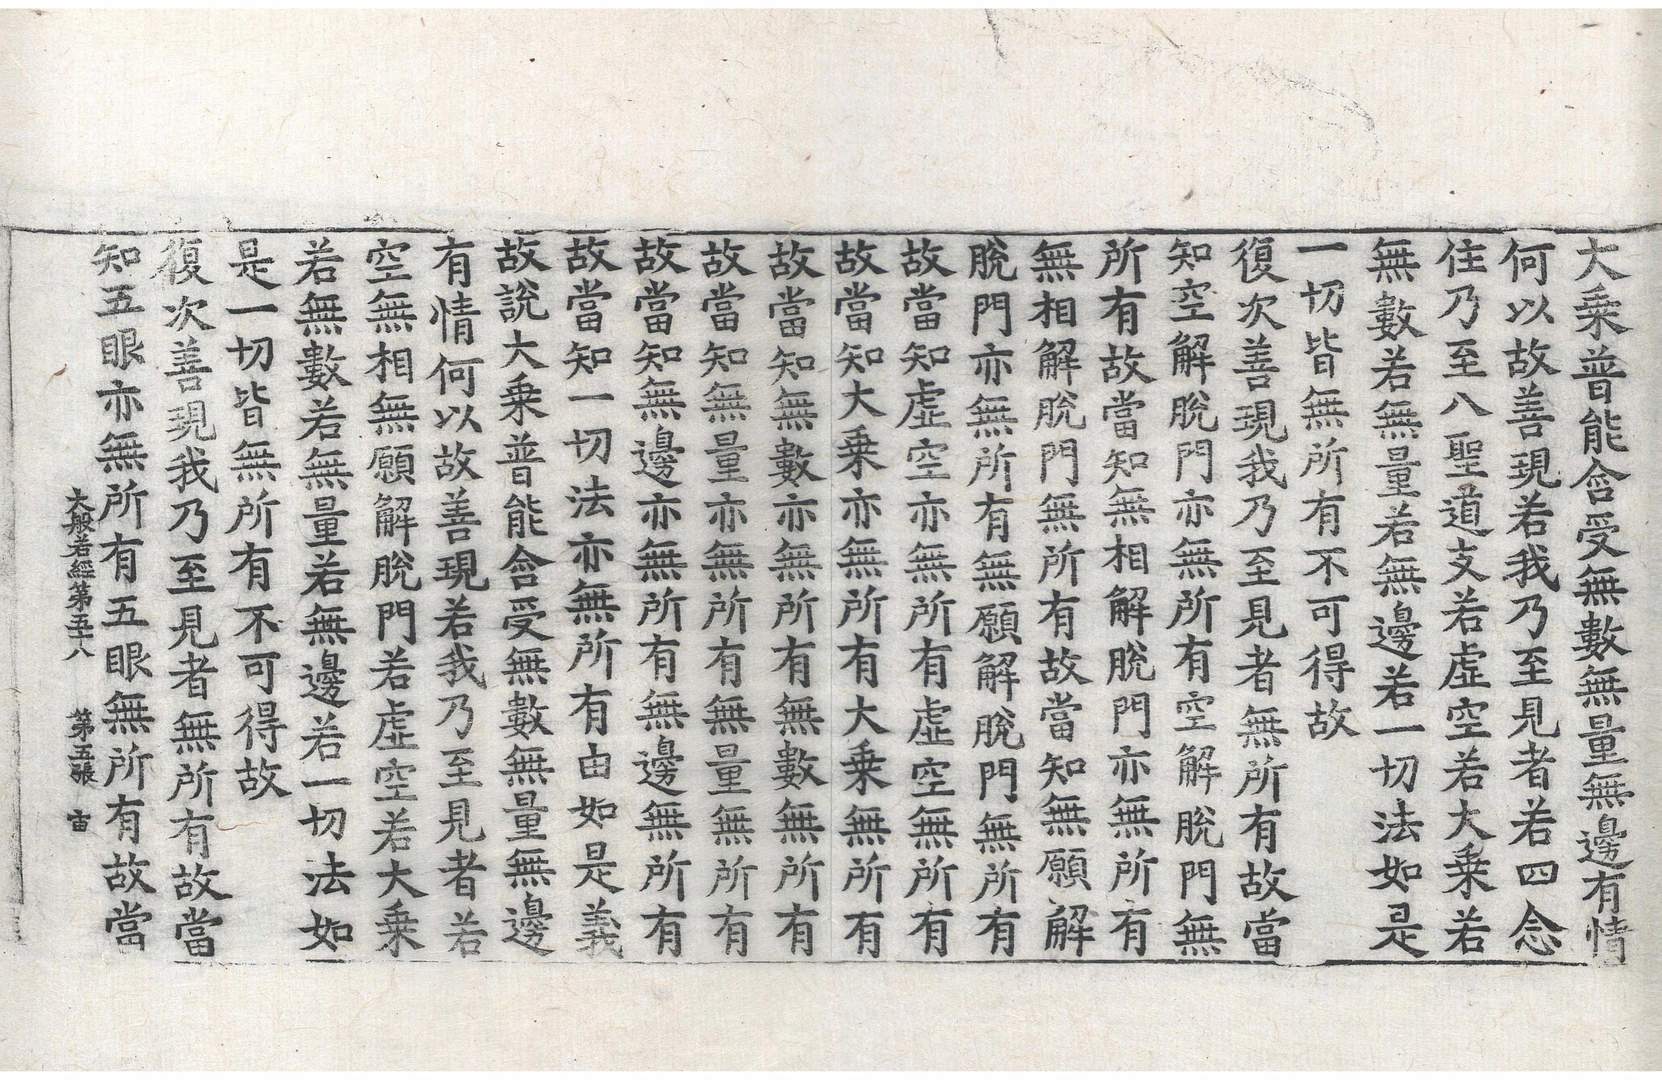 大乗普能含受無數無量無邊有情
何以故善現若我乃至見者若四念
住乃至八聖道支若虛空若大乗若
無數若無量若無邊若一切法如是
一切皆無所有不可得故
復次善現我乃至見者無所有故當
知空解脫門亦無所有空解脫門無
所有故當知無相解脫門亦無所有
無相解脫門無所有故當知無願解
脫門亦無所有無願解脫門無所有
故當知虛空亦無所有虛空無所有
故當知大乗亦無所有大乗無所有
故當知無數亦無所有無數無所有
故當知無量亦無所有無量無所有
故當知無邊亦無所有無邊無所有
故當知一切法亦無所有由如是義
故說大乗普能含受無數無量無邊
有情何以故善現若我乃至見者若
空無相無願解脫門若虛空若大乗
若無數若無量若無邊若一切法如
是一切皆無所有不可得故
復次善現我乃至見者無所有故當
知五眼亦無所有五眼無所有故當
大般若經第五十八 第五張 宙